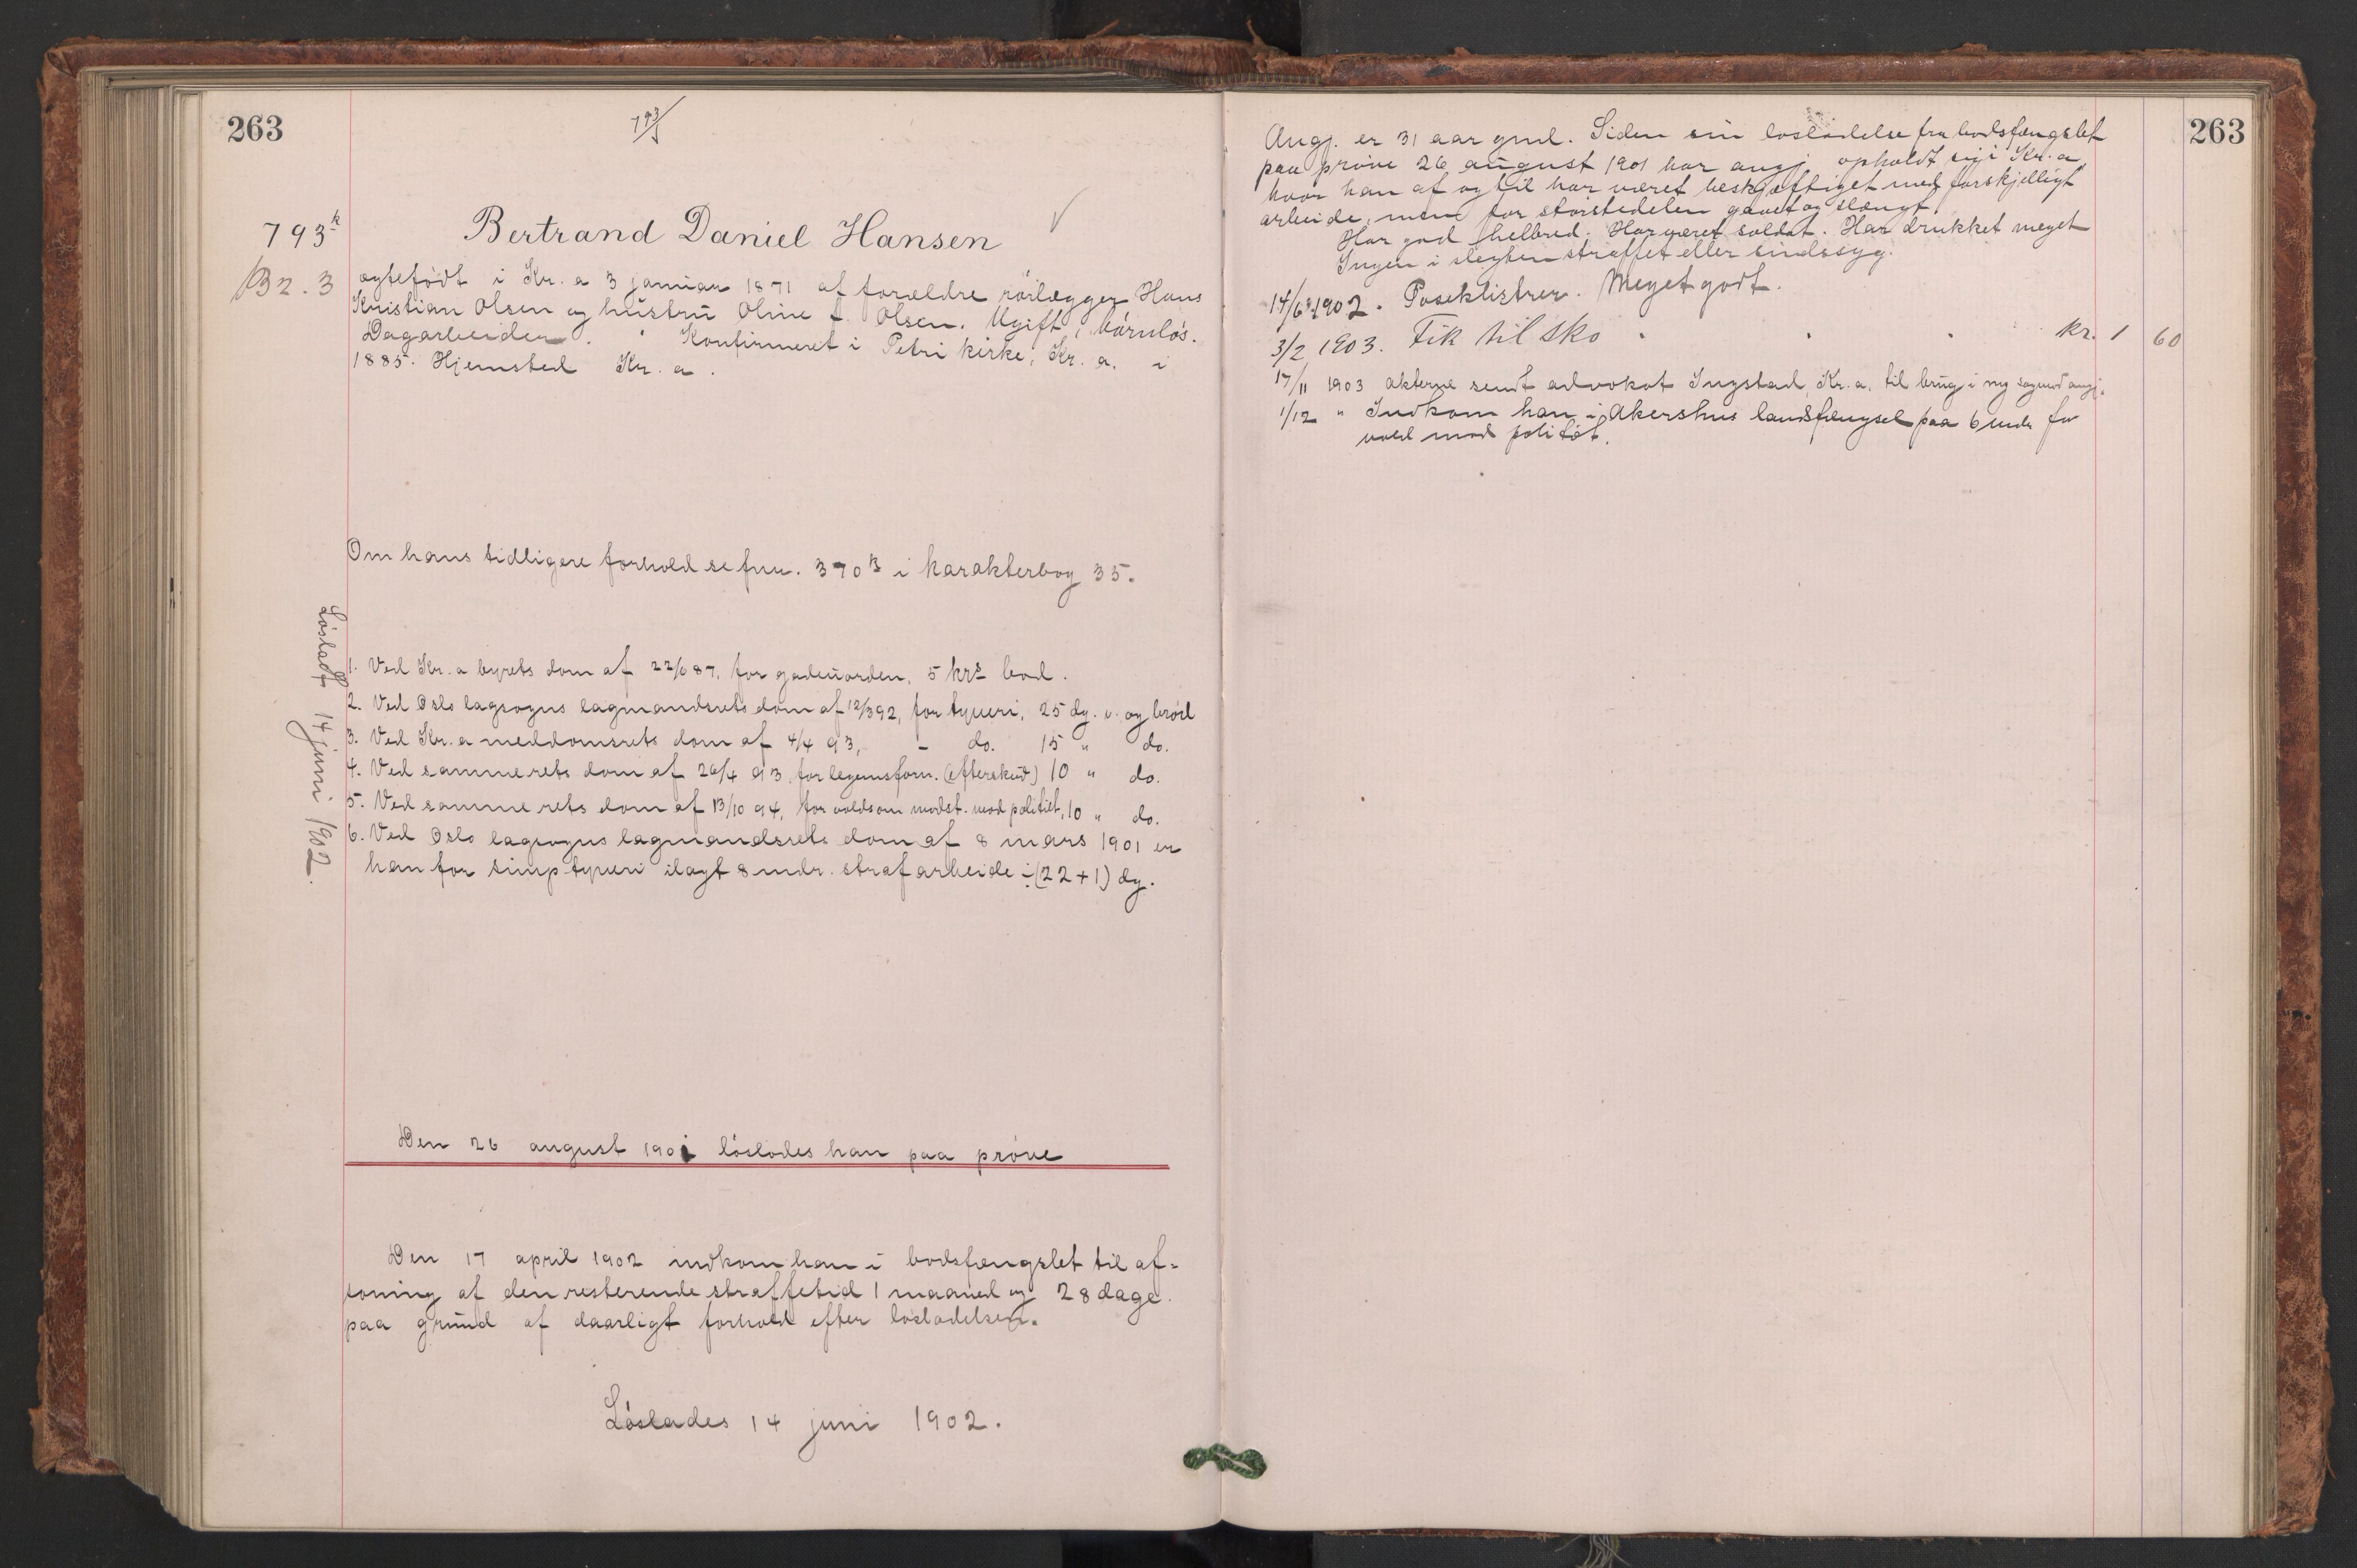 263
793/5
793k
Bertrand Daniel Hansen
B2.3
ægtefödt i Kr.a 3 januar 1871 af forældre rörlægger Hans
Kristian Olsen og hustru Oline f. Olsen. Ugift, börnlös.
Dagarbeider. Konfirmeret i Petri kirke, Kr.a. i
1885. Hjemsted Kr.a.
Om hans tidligere forhold se fnr. 370 B i karakterbog 35.
Lösladt 14 juni 1902.
1. Ved Kr.a byrets dom af 22/6 87, for gadeuorden, 5 krs bod.
2. Ved Oslo lagsogns lagmandsrets dom af 12/3 92, for tyveri, 25 dg. v. og bröd
3. Ved Kr.a meddomsrets dom af 4/4 93, - do. 15 " do.
4. Ved samme rets dom af 26/4 93, for legemsforn. (efterskud) 10 " do.
5. Ved samme rets dom af 13/10 94, for voldsom modst. mod politiet, 10 " do.
6. Ved Oslo lagsogns lagmandsrets dom af 8 mars 1901 er
han for simp tyveri ilagt 8 mdr. strafarbeide ÷ (22 + 1) dg.
Den 26 august 1901 löslodes han paa pröve
Den 17 april 1902 indkom han i bodsfængslet til af=
soning af den resterende straffetid 1 maaned og 28 dage
paa grund af daarligt forhold efter lösladelsen.
Löslades 14 juni 1902.
263
Angj. er 31 aar gml. Siden sin lösladelse fra bodsfængslet
paa pröve 26 august 1901 har angj. opholdt sig i Kr.a,
hvor han af og til har været beskjæftiget med forskjelligt
arbeide, men for störstedelen gaaet og slængt.
Har god helbred. Har været soldat. Har drukket meget
Ingen i slegten straffet eller sindssyg.
14/6 1902. Poseklistrer. Meget godt.
3/2 1903. Fik til sko " " " kr. 1 60
17/11 1903 akterne sendt advokat Ingstad, Kr.a. til brug i ny sag mod angj.
1/12 " Indkom han i Akershus landsfængsel paa 6 mdr for
vold mod politiet.